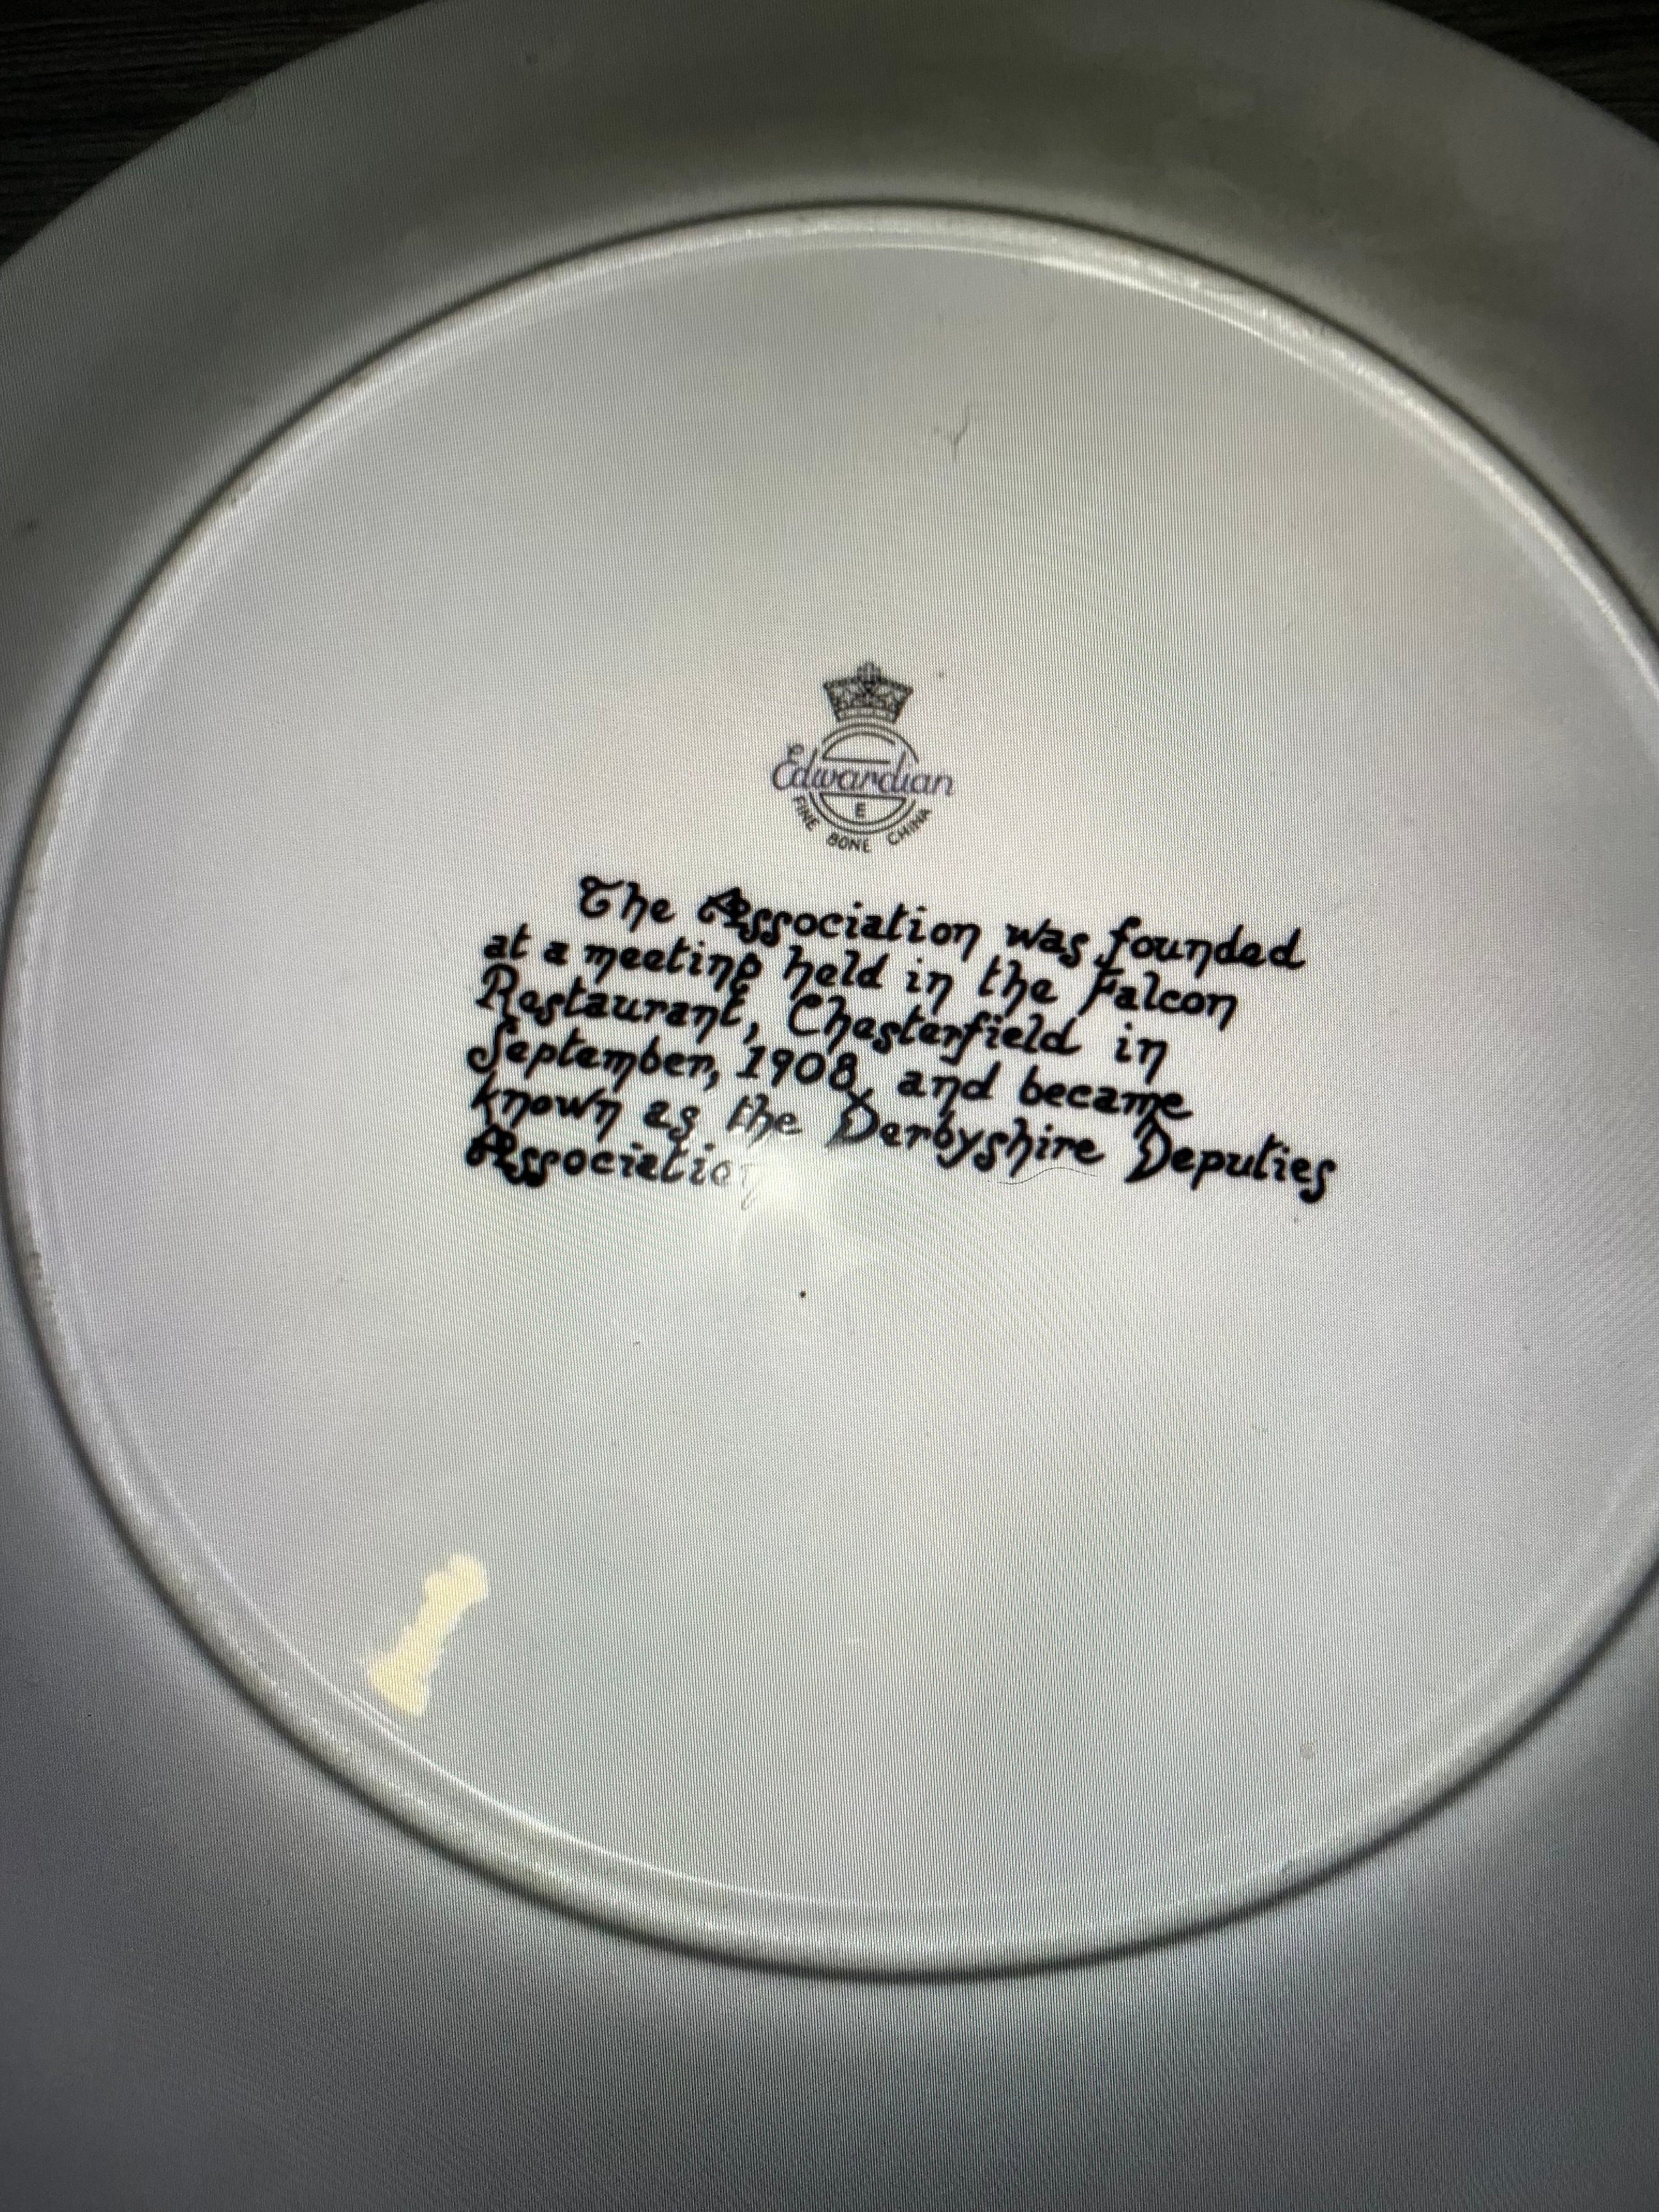 Edwardian
E
FINE BONE CHINA
The Association was founded
at a meeting held in the Falcon
Restaurant, Chesterfield in
September, 1908, and became
known as the Derbyshire Deputies
Association